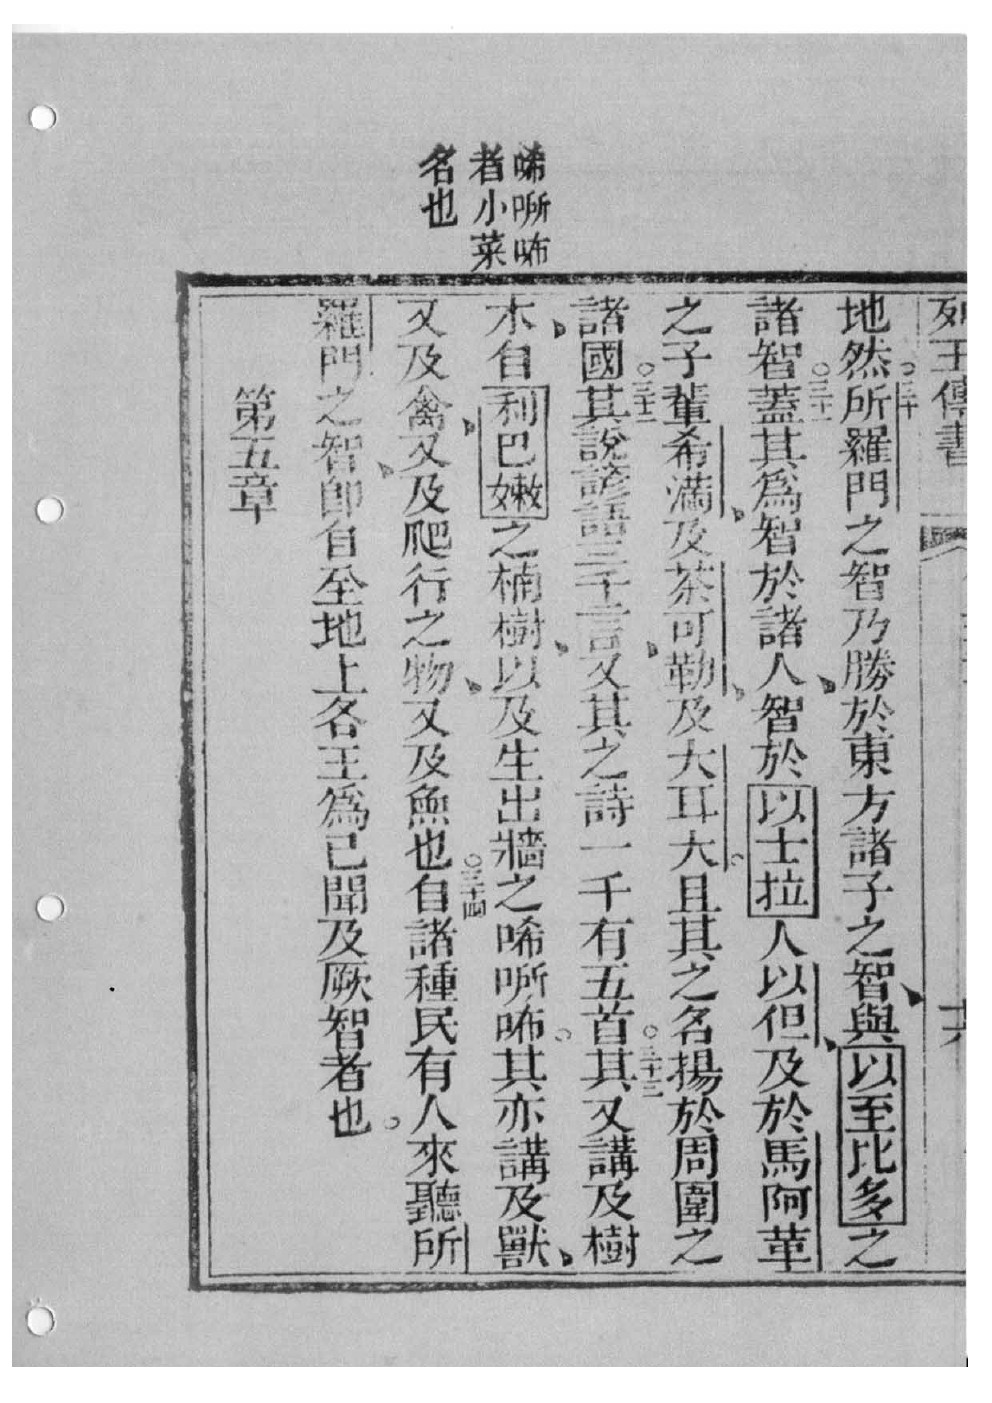 唏㖿咘
者小菜
名也
列王傳書
地然所羅門之智乃勝於東方諸子之智與以至比多之
三十
諸智蓋其爲智於諸人智於以士拉人以但及於馬阿革
三十一
之子輩希滿及茶可勒及大耳大且其之名揚於周圍之
諸國其說諺語三千言又其之詩一千有五首其又講及樹
三十二
三十三
木自利巴嫩之楠樹以及生出牆之唏㖿咘其亦講及獸
又及禽又及爬行之物又及魚也自諸種民有人來聽所
三十四
羅門之智即自至地上各王爲已聞及厥智者也
第五章